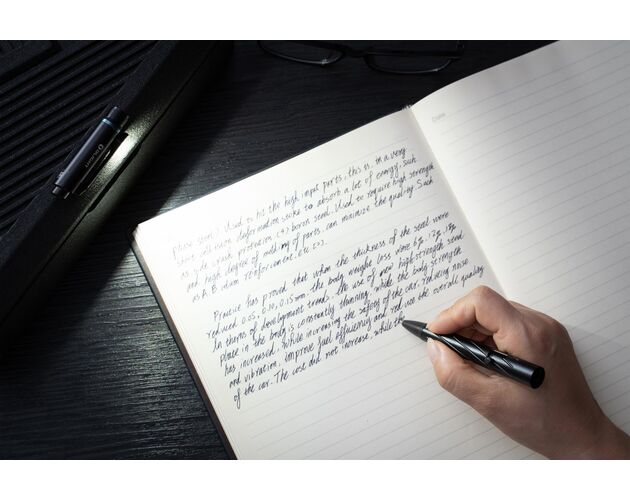 OLIGHT
Date
phase steel). Used to hit the high input parts, this is in a very
give collision deformation seeks to absorb a lot of energy, such
as side crash protection (4) boron steel. Used to require high strength
and high degree of melting of parts, can minimize the quality. Such
as A B column reinforcement, etc.
Practice has proved that when the thickness of the steel were
reduced 0.05, 0.10, 0.15mm, the body weight loss were 6%, 12%, 18%.
In therms of development trends, the use of new high-strength steel
plate in the body is constantly thinning, while the body strength
has increased, while increasing the safety of the car, reducing noise
and vibration, improve fuel efficiency and reduce the overall quality
of the car. The cost did not increase, while the